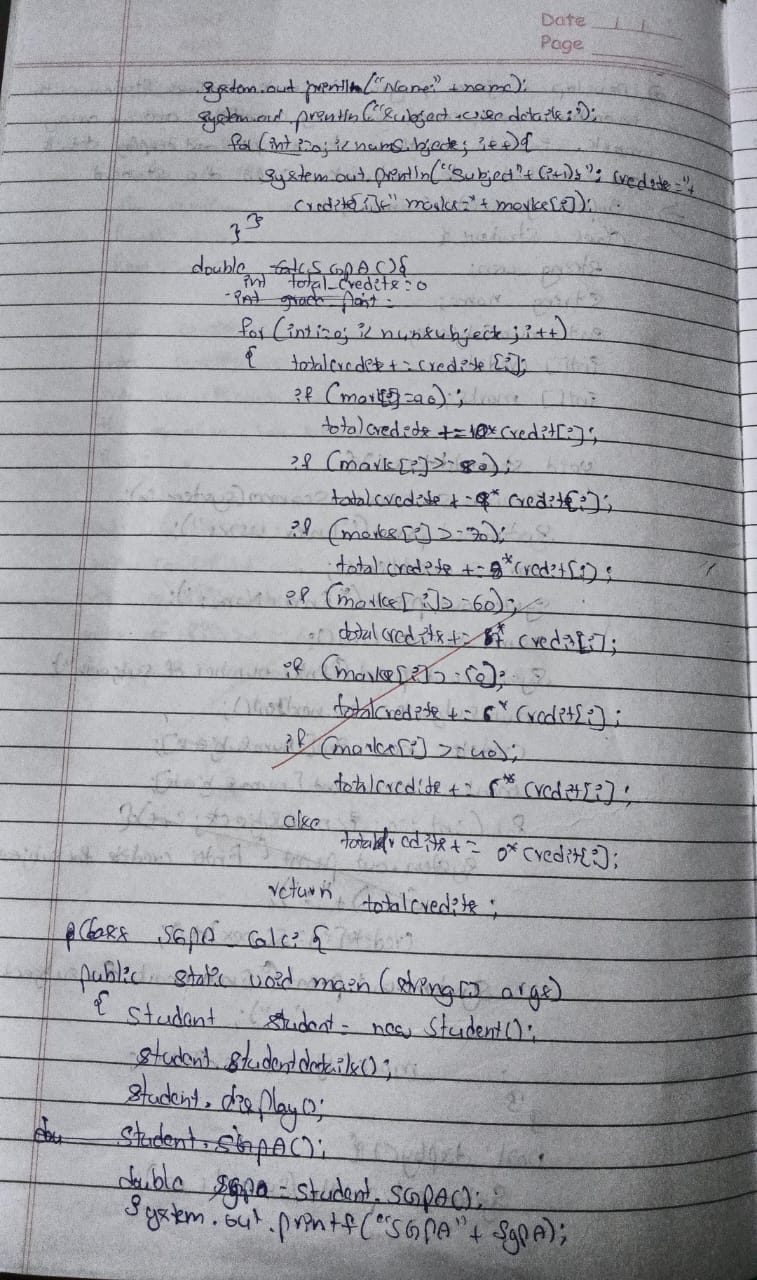 Date
Page
System.out.println("Name:" + name);
System.out.println("Subject-wise details:");
for (int i=0; i<numsubjects; i++){
System.out.println("Subject" + (i+1)+": credits="+
credits[i]+" marks="+ marks[i]);
}}
double calcSGPA(){
int total_credits=0
int grade Point =
for (int i=0; i<numsubject; i++)
{ totalcredit += credits [i];
if (mark[i]=90);
totalcredits +=10* credit[i];
if (mark[i]>=80);
totalcredits +=9* credit[i];
if (marks[i]>=70);
totalcredits +=8* credit[i];
if (marks[i]>=60);
totalcredits += 7* credit[i];
if (marks[i]>=50);
totalcredits += 6* credit[i];
if (marks[i]>=40);
totalcredits += 5* credit[i];
else
totalcredits += 0* credit[i];
return totalcredits;
class SGPA_calci {
public static void main (string[] args)
{ Student student = new Student();
student.studentdetails();
student.display();
dou student.SGPA();
double sgpa = student.SGPA();
System.out.printf("SGPA"+ SgpA);